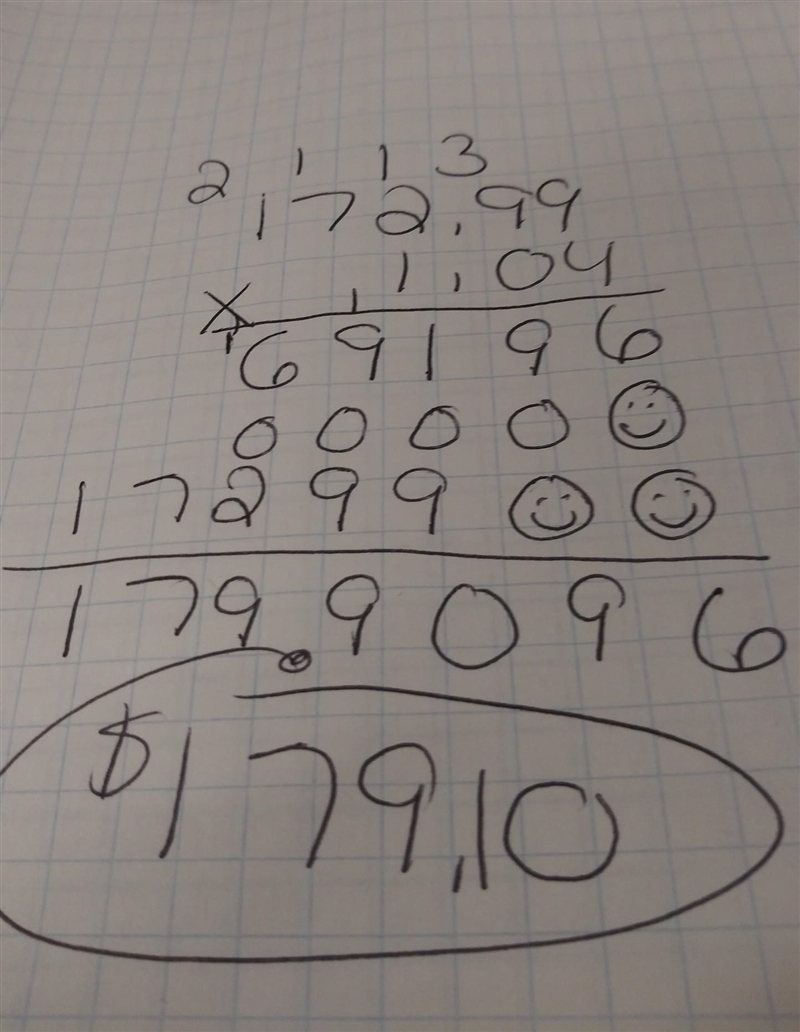 2 1 1 3
172.99
x 1.04
69196
0000☺
17299☺☺
179.9096
$179.10